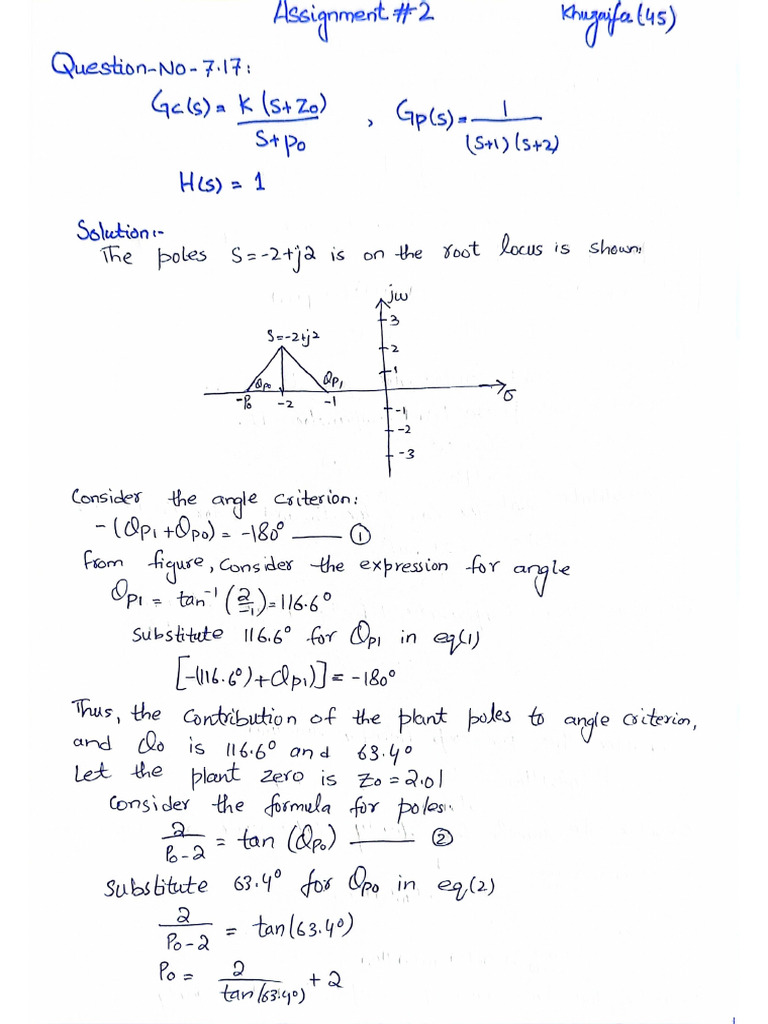 Assignment #2
Khuzaifa (45)
Question-No-7.17:
Gc(s) = K (S+Zo) / S+Po , Gp(s) = 1 / (S+1)(S+2)
H(s) = 1
Solution:-
The poles S=-2+j2 is on the root locus is shown:
jω
3
S=-2+j2
2
1
θpo
θp1
-Po
-2
-1
σ
-1
-2
-3
Consider the angle criterion:
-(θp1+θpo) = -180° —— ①
from figure, consider the expression for angle
θp1 = tan⁻¹(2/-1) = 116.6°
substitute 116.6° for θp1 in eq(1)
[-(116.6°)+θp1)] = -180°
Thus, the contribution of the plant poles to angle criterion,
and θo is 116.6° and 63.4°
Let the plant zero is Zo = 2.01
Consider the formula for poles:
2 / Po-2 = tan (θpo) —— ②
substitute 63.4° for θpo in eq(2)
2 / Po-2 = tan(63.4°)
Po = 2 / tan(63.4°) + 2